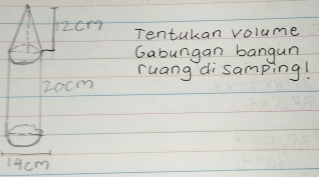 12cm
Tentukan volume
Gabungan bangun
ruang di samping!
20cm
14cm